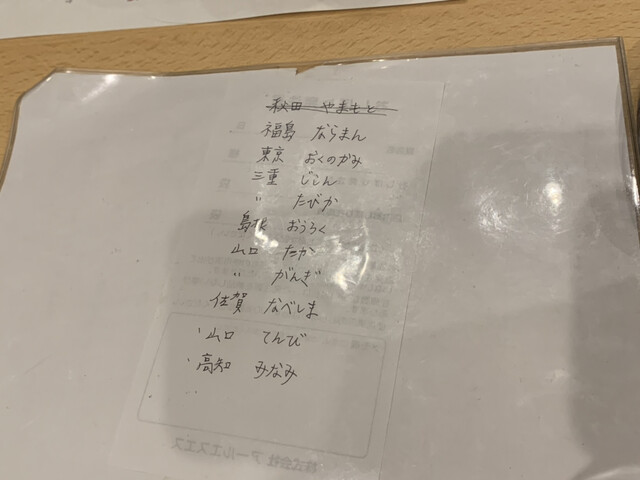 秋田 やまもと
福島 ならまん
東京 おくのかみ
三重 じこん
〃 たびか
島根 おうろく
山口 たか
〃 がんぎ
佐賀 なべしま
・山口 てんび
・高知 みなみ
株式会社 アールエスエス